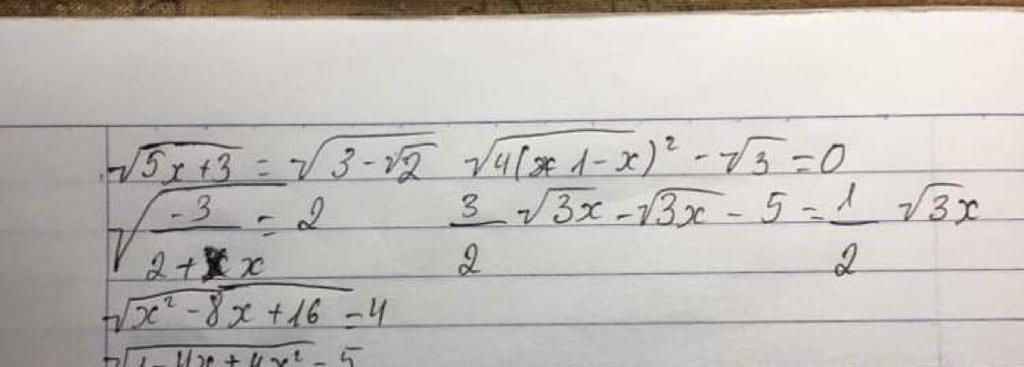 √(5x+3) = √(3-√2) √(4(1-x)²) - √3 = 0
√(-3/(2+x)) = 2 3/2 √3x - √3x - 5 = 1/2 √3x
√(x² - 8x + 16) = 4
√(1-4x+4x²) = 5